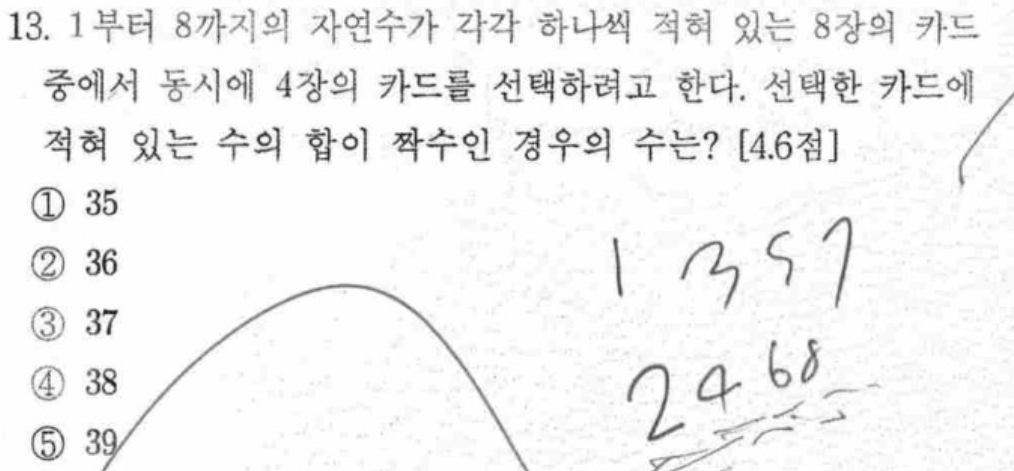 13. 1부터 8까지의 자연수가 각각 하나씩 적혀 있는 8장의 카드
중에서 동시에 4장의 카드를 선택하려고 한다. 선택한 카드에
적혀 있는 수의 합이 짝수인 경우의 수는? [4.6점]
① 35
② 36
③ 37
④ 38
⑤ 39
1 3 5 7
2 4 6 8